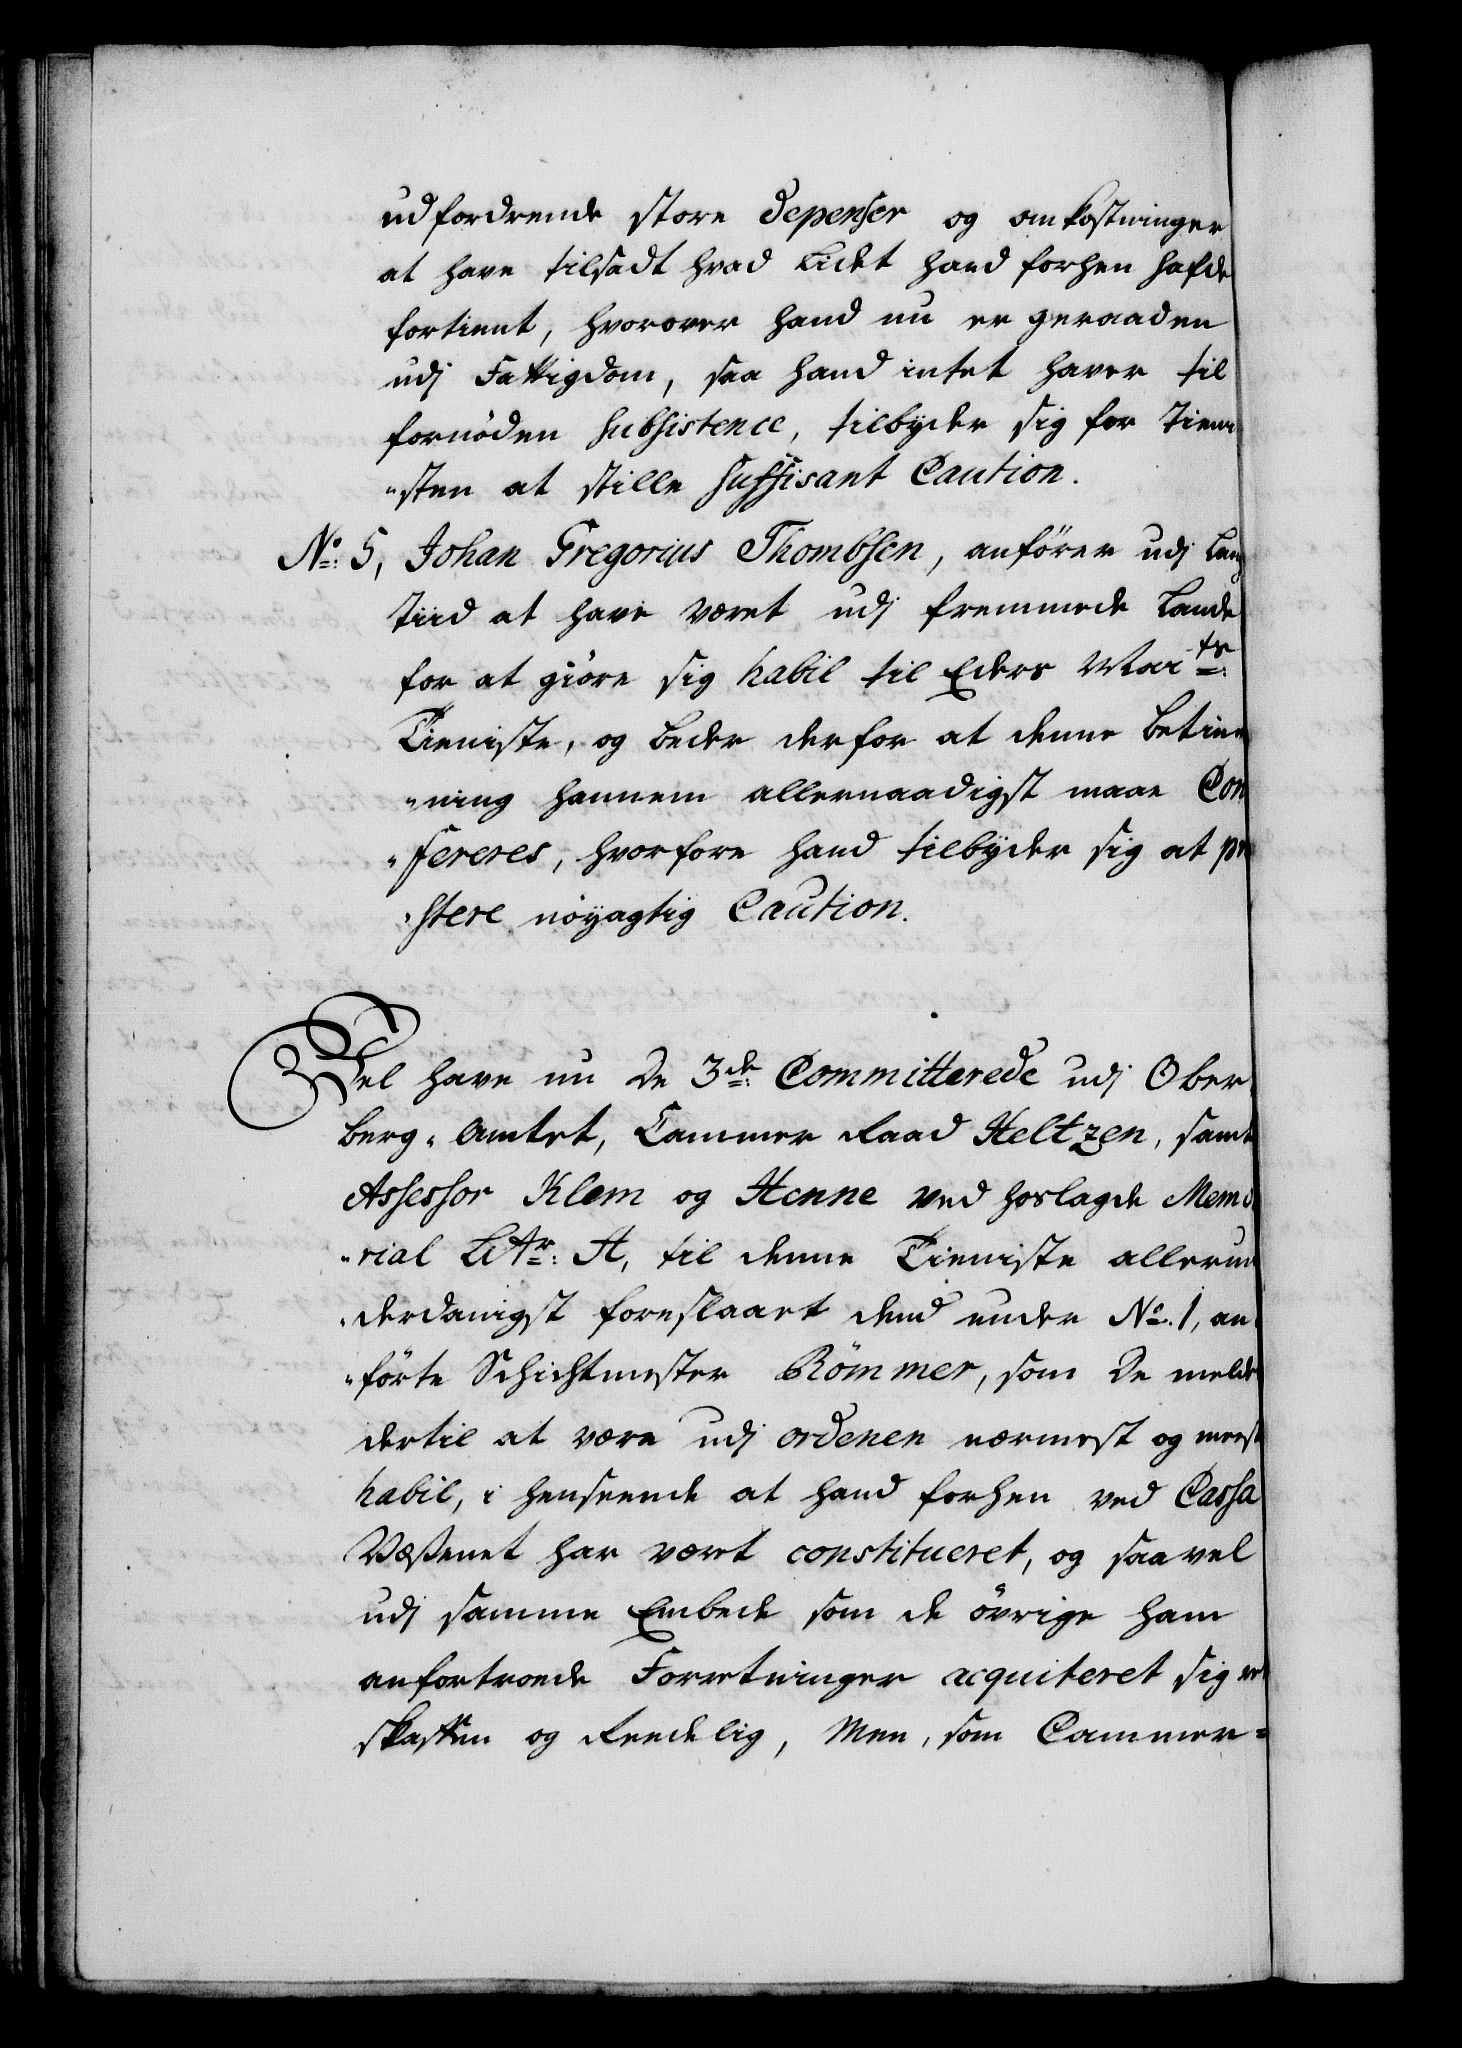 udfordrende store depenser og omkostninger
at have tilsadt hvad Lidet hand forhen hafde
fortient, hvorover hand nu er geraaden
udj Fattigdom, saa hand intet haver til
fornöden subsistence, tilbyder sig for Tieni
"sten at stille suffisant Caution.
No: 5, Johan Gregorius Thombsen, anförer udj Lang
Tiid at have været udj fremmede Lande
for at giöre sig habil til Eders Mai ts:
Tieniste, og beder derfor at denne betien
"ning hannem allernaadigst maae Con
"fereres, hvorfore hand tilbyder sig at præ
"stere nöyagtig Caution.
Vel have nu De 3de: Committerede udj Ober
berg-Amtet, Cammer Raad Heltzen, samt
Assessor Klem og Henne ved hoslagde Memo
"rial Littr: A, til denne Tieniste allerun
"derdanigst foreslaaet dend under No. 1, an
"förte Schichtmester Römmer, som De melder
dertil at være udj ordenen nærmest og meest
habil, i henseende at hand forhen ved Cassa
Væßenet har været constitueret, og saavel
udj samme Embede som de övrige ham
anfortroede Forretninger acquiteret sig ret
skaffen og Reedelig, Men, som Cammer=